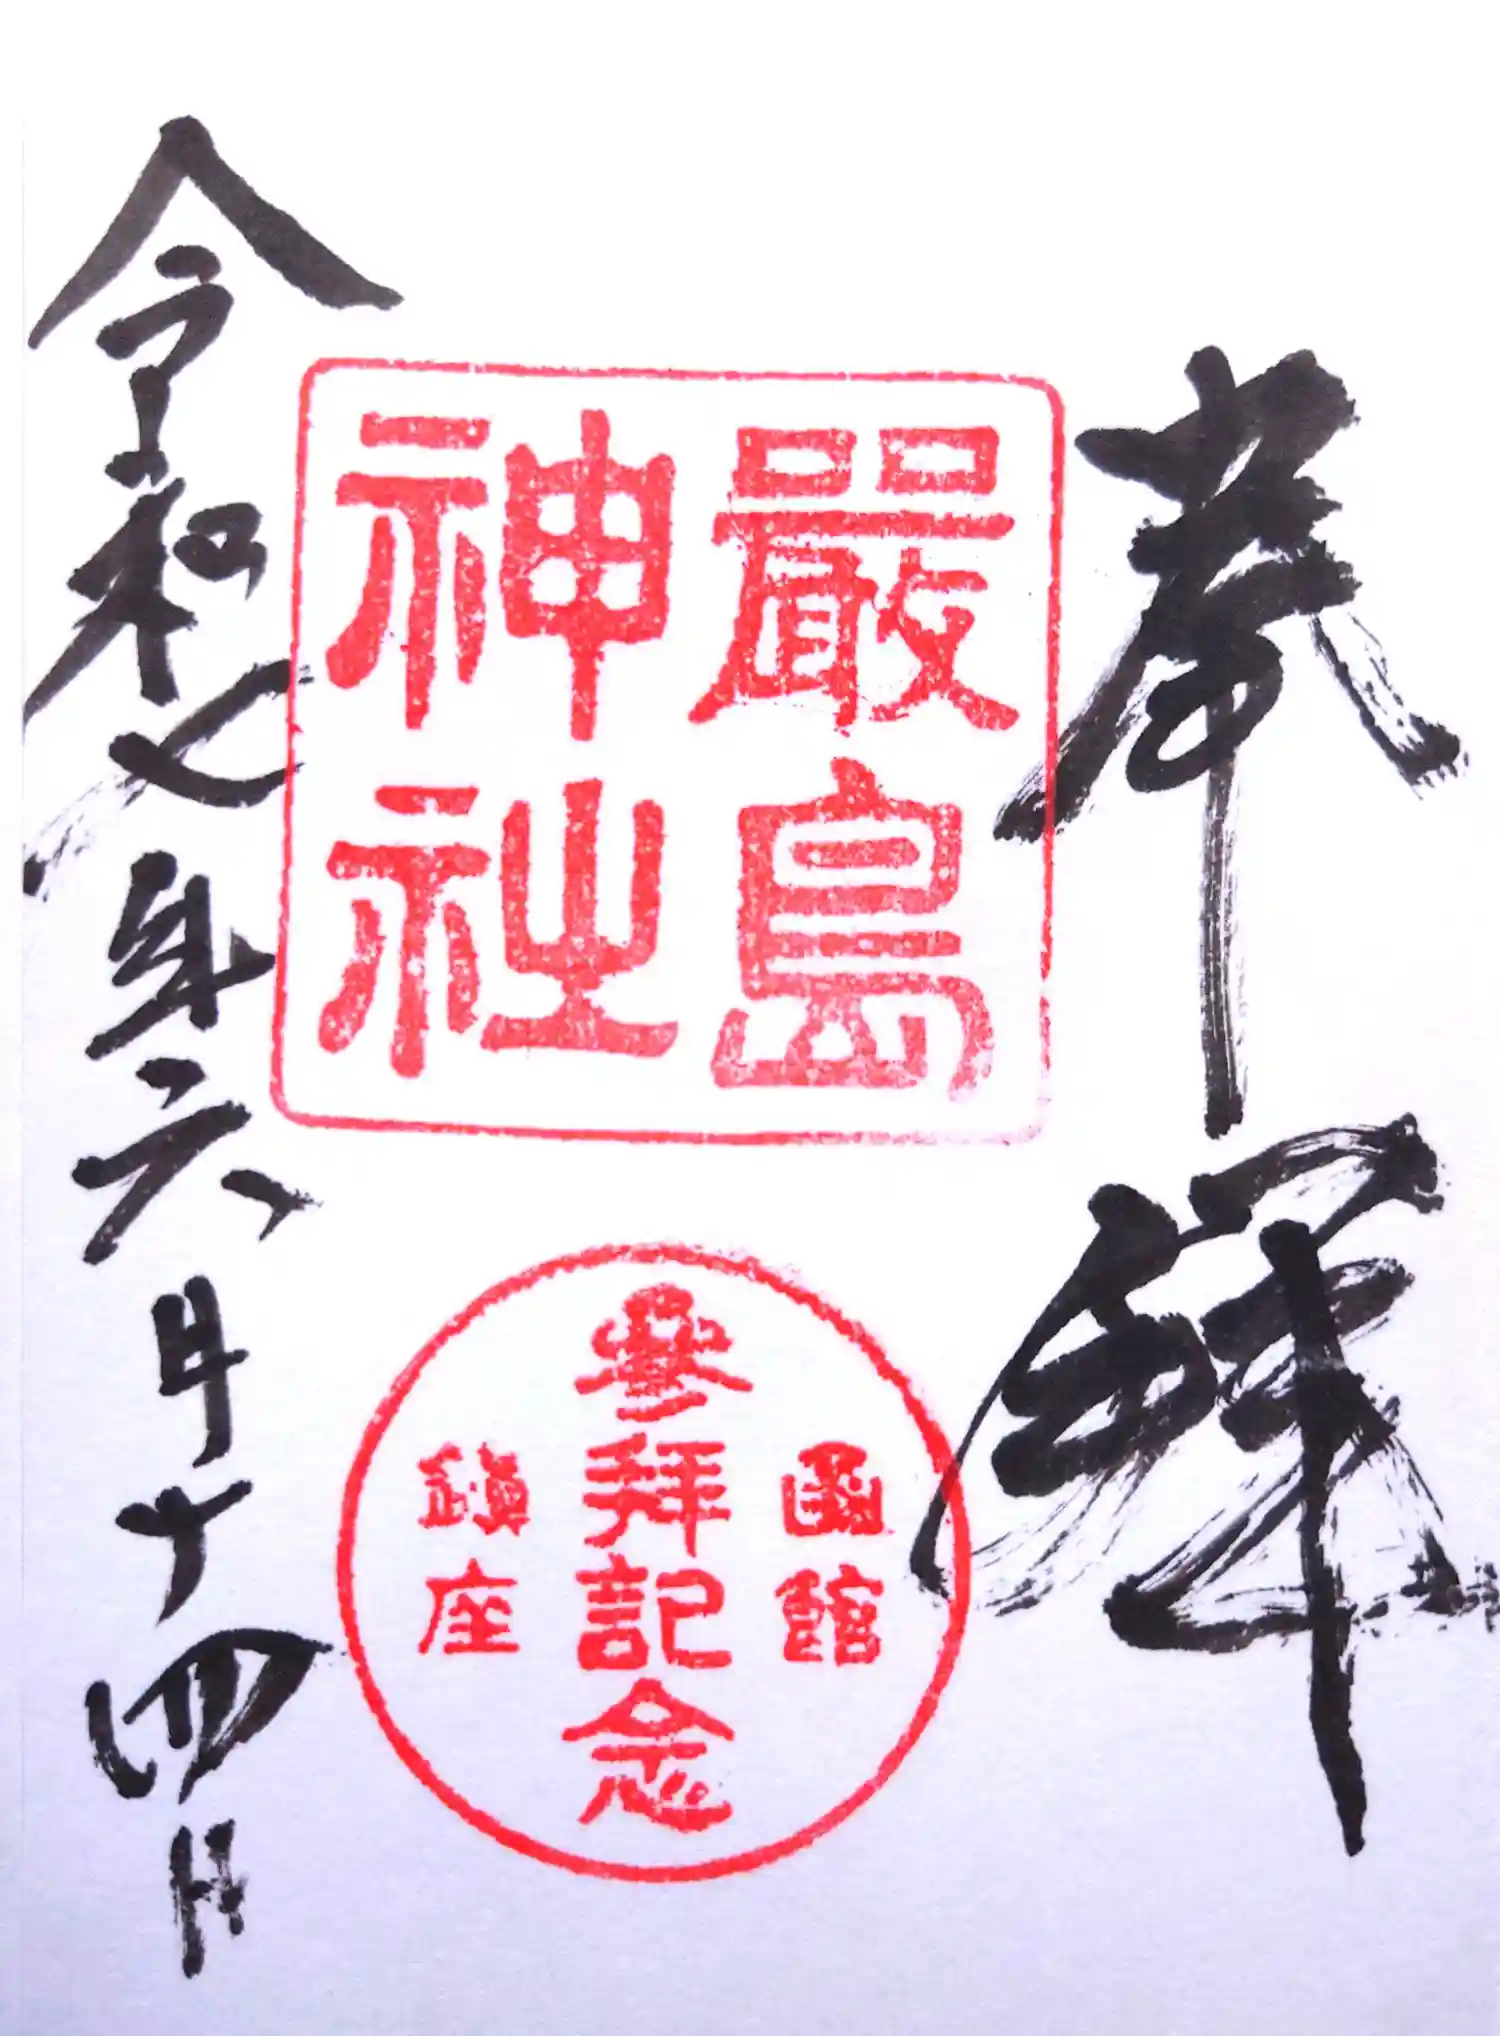 奉拝
嚴島
神社
函館
參拜記念
鎮座
令和七年六月十四日